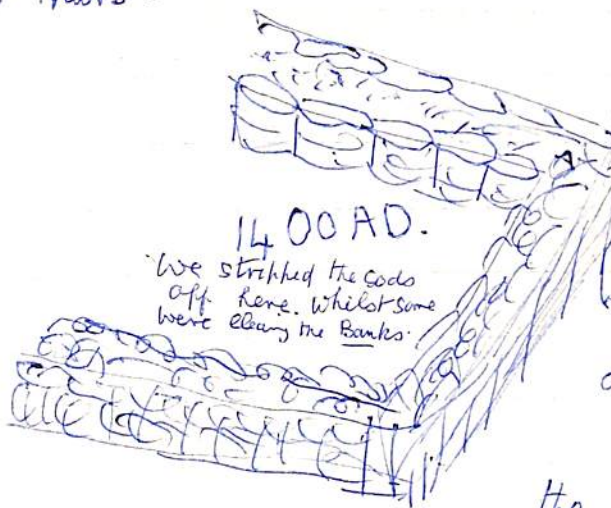 1400 AD.
We stripped the sods
off here. Whilst some
were cleang the Banks.
A